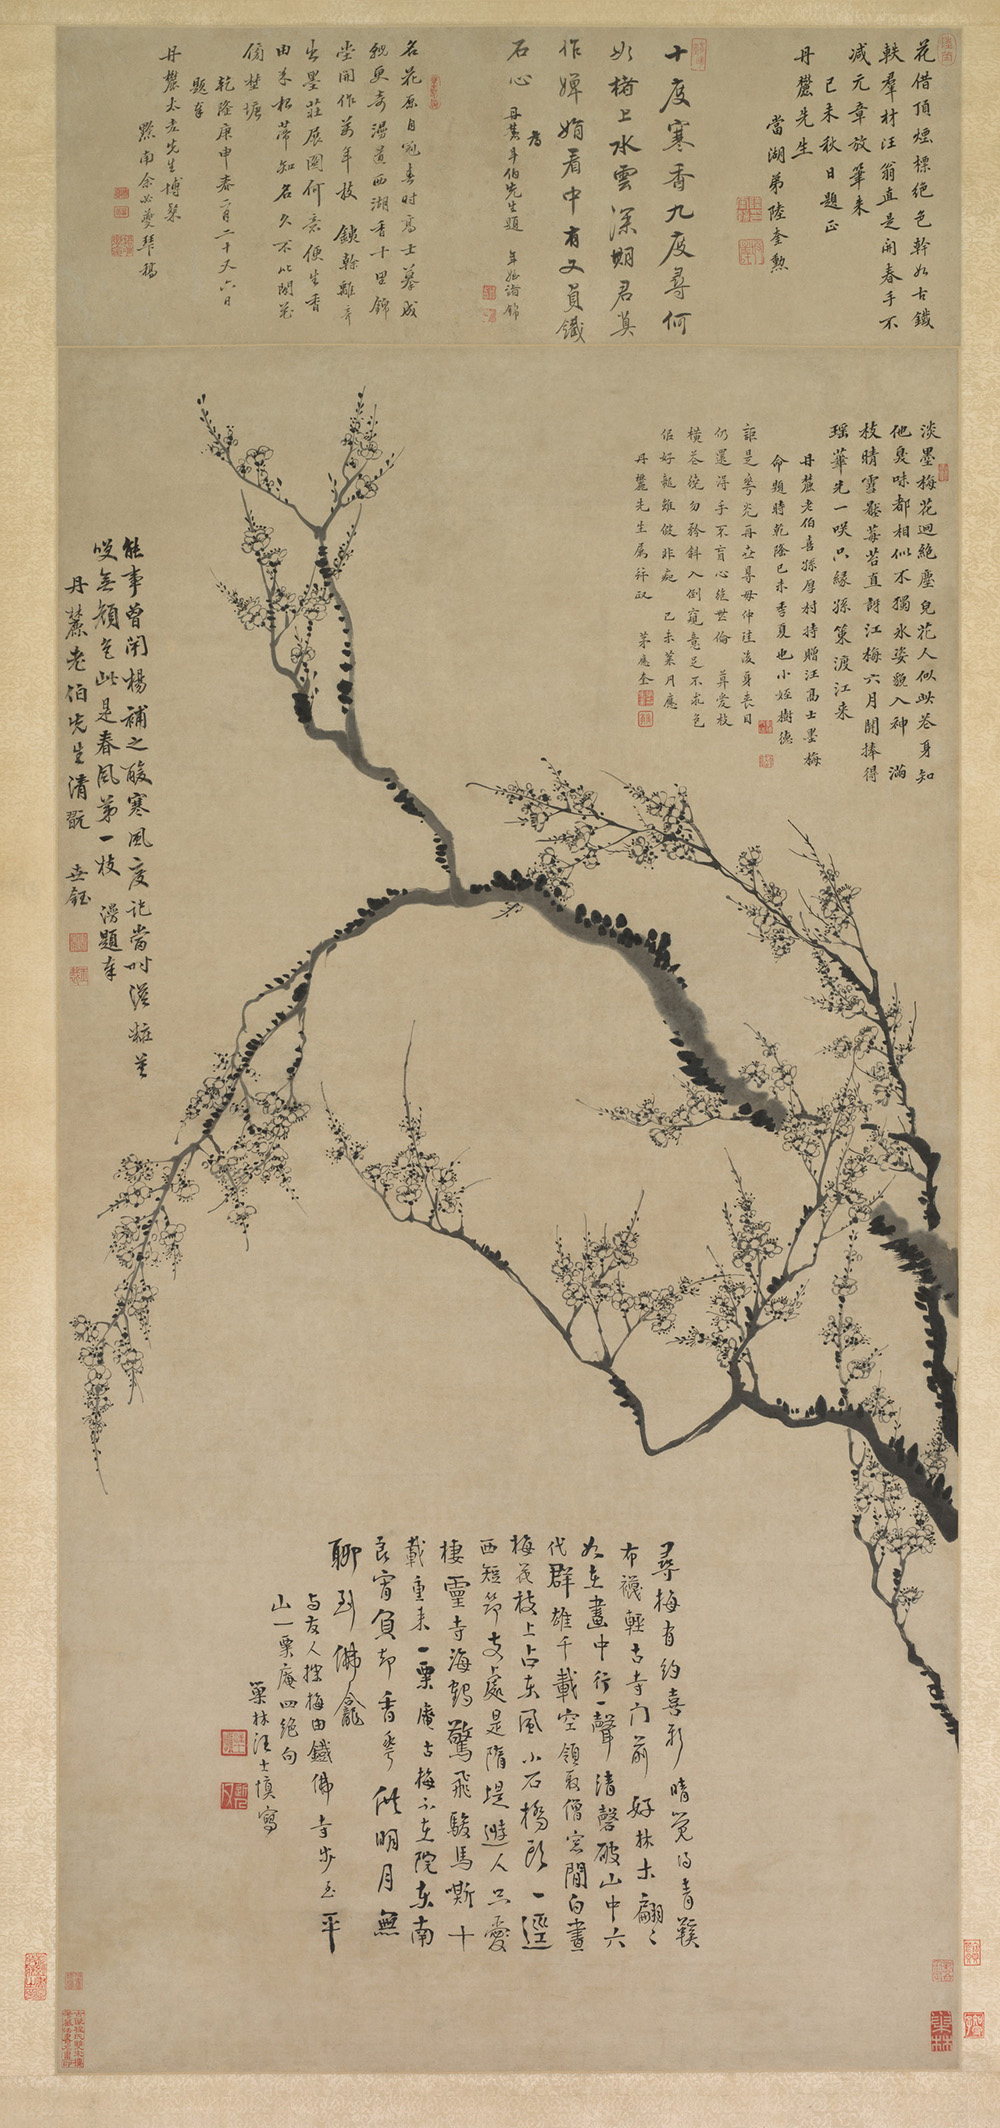 花借頂煙標絕色幹如古鐵
軼羣材汪翁直是開春手不
减元章放筆来
己未秋日題正
丹麓先生
當湖弟陸奎勲
十度寒香九度尋何
如楮上水雲深期君莫
作嬋娟看中有又貞鐵
石心
為
丹麓年伯先生題 年姪諸錦
名花原自冠春時高士摹成
更奇漫道西湖香十里錦
堂開作萬年枝 鐵幹離奇
出墨莊展圖何意便生香
由来松蒂知名久不比閒花
傍埜塘
乾隆庚申春二月二十又六日
題奉
丹麓太老先生博粲
黔南余必夔拜稿
淡墨梅花迥絕塵皃花人似此花身知
他臭味都相似不獨氷姿貌入神 滿
枝晴雪壓莓苔直訝江梅六月開捧得
瑶華先一咲只緣孫策渡江来
丹麓老伯喜孫厚村持贈汪髙士墨梅
命題時乾隆己未季夏也小姪樹德
詎是華光再世尋毋仲珪後身喪目
仍還得手不盲心絶世倫 葊愛枝
横花繞勿矜斜入倒窺竟足不求色
佀好龍雖倣非 己未月應
丹麓先生属并政 茅應奎
能事曾聞楊補之酸寒風度說當時澹粧莫
咲無顏色此是春風第一枝 漫題奉
丹麓老伯先生清翫 世鈺
尋梅有約喜新晴覓得青鞵
布襪輕古寺門前好林木翩〻
如在畫中行一聲清磬破山中六
代群雄千載空領取僧窓閒白晝
梅花枝上占東風小石橋頭一逕
西短筇支處是隋堤遊人只愛
棲靈寺海鶴驚飛駿馬嘶十
載重来一粟庵古梅不在院東南
良宵負却香華供明月無
聊到佛龕
与友人探梅由鐵佛寺步至平
山一粟庵四絕句
巢林汪士慎寫
巢林